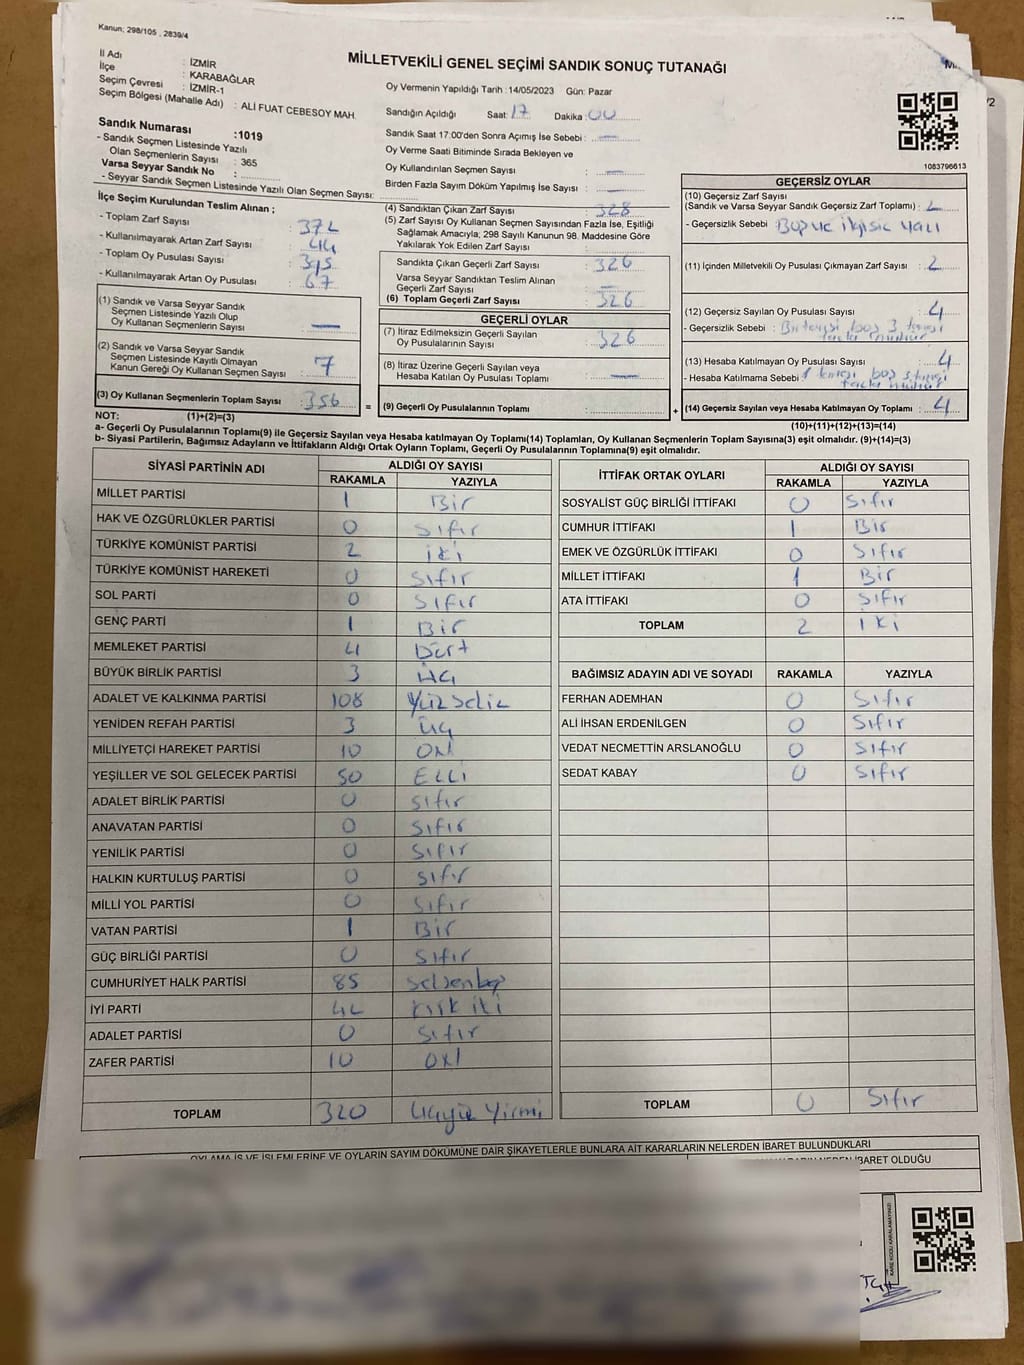 Kanun; 298/105 , 2839/4
MİLLETVEKİLİ GENEL SEÇİMİ SANDIK SONUÇ TUTANAĞI
İl Adı : İZMİR
İlçe : KARABAĞLAR
Seçim Çevresi : İZMİR-1
Seçim Bölgesi (Mahalle Adı) : ALİ FUAT CEBESOY MAH.
Sandık Numarası :1019
- Sandık Seçmen Listesinde Yazılı
Olan Seçmenlerin Sayısı : 365
Varsa Seyyar Sandık No :
- Seyyar Sandık Seçmen Listesinde Yazılı Olan Seçmen Sayısı:
İlçe Seçim Kurulundan Teslim Alınan ;
- Toplam Zarf Sayısı : 372
- Kullanılmayarak Artan Zarf Sayısı : 44
- Toplam Oy Pusulası Sayısı : 395
- Kullanılmayarak Artan Oy Pusulası : 67
(1) Sandık ve Varsa Seyyar Sandık
Seçmen Listesinde Yazılı Olup
Oy Kullanan Seçmenlerin Sayısı : —
(2) Sandık ve Varsa Seyyar Sandık
Seçmen Listesinde Kayıtlı Olmayan
Kanun Gereği Oy Kullanan Seçmen Sayısı : 7
(3) Oy Kullanan Seçmenlerin Toplam Sayısı : 356
Oy Vermenin Yapıldığı Tarih :14/05/2023 Gün: Pazar
Sandığın Açıldığı Saat: 17 Dakika : 00
Sandık Saat 17:00'den Sonra Açımış İse Sebebi : —
Oy Verme Saati Bitiminde Sırada Bekleyen ve
Oy Kullandırılan Seçmen Sayısı : —
Birden Fazla Sayım Döküm Yapılmış İse Sayısı : —
(4) Sandıktan Çıkan Zarf Sayısı : 328
(5) Zarf Sayısı Oy Kullanan Seçmen Sayısından Fazla İse, Eşitliği
Sağlamak Amacıyla; 298 Sayılı Kanunun 98. Maddesine Göre
Yakılarak Yok Edilen Zarf Sayısı :
Sandıkta Çıkan Geçerli Zarf Sayısı : 326
Varsa Seyyar Sandıktan Teslim Alınan
Geçerli Zarf Sayısı : —
(6) Toplam Geçerli Zarf Sayısı : 326
GEÇERLİ OYLAR
(7) İtiraz Edilmeksizin Geçerli Sayılan
Oy Pusulalarının Sayısı : 326
(8) İtiraz Üzerine Geçerli Sayılan veya
Hesaba Katılan Oy Pusulası Toplamı : —
= (9) Geçerli Oy Pusulalarının Toplamı :
1083796613
GEÇERSİZ OYLAR
(10) Geçersiz Zarf Sayısı
(Sandık ve Varsa Seyyar Sandık Geçersiz Zarf Toplamı) : 2
- Geçersizlik Sebebi :
(11) İçinden Milletvekili Oy Pusulası Çıkmayan Zarf Sayısı : 2
(12) Geçersiz Sayılan Oy Pusulası Sayısı : 4
- Geçersizlik Sebebi : Bir tanesi boş 3 tanesi
fazla mühür
(13) Hesaba Katılmayan Oy Pusulası Sayısı : 4
- Hesaba Katılmama Sebebi : 1 tanesi boş 3 tanesi
fazla mühür
+ (14) Geçersiz Sayılan veya Hesaba Katılmayan Oy Toplamı : 4
NOT: (1)+(2)=(3)
(10)+(11)+(12)+(13)=(14)
a- Geçerli Oy Pusulalarının Toplamı(9) ile Geçersiz Sayılan veya Hesaba katılmayan Oy Toplamı(14) Toplamları, Oy Kullanan Seçmenlerin Toplam Sayısına(3) eşit olmalıdır. (9)+(14)=(3)
b- Siyasi Partilerin, Bağımsız Adayların ve İttifakların Aldığı Ortak Oyların Toplamı, Geçerli Oy Pusulalarının Toplamına(9) eşit olmalıdır.
SİYASİ PARTİNİN ADI ALDIĞI OY SAYISI
RAKAMLA YAZIYLA
MİLLET PARTİSİ 1 Bir
HAK VE ÖZGÜRLÜKLER PARTİSİ 0 Sıfır
TÜRKİYE KOMÜNİST PARTİSİ 2 iki
TÜRKİYE KOMÜNİST HAREKETİ 0 Sıfır
SOL PARTİ 0 Sıfır
GENÇ PARTİ 1 Bir
MEMLEKET PARTİSİ 4 Dört
BÜYÜK BİRLİK PARTİSİ 3 Üç
ADALET VE KALKINMA PARTİSİ 108 Yüzsekiz
YENİDEN REFAH PARTİSİ 3 Üç
MİLLİYETÇİ HAREKET PARTİSİ 10 ON
YEŞİLLER VE SOL GELECEK PARTİSİ 50 ELLİ
ADALET BİRLİK PARTİSİ 0 Sıfır
ANAVATAN PARTİSİ 0 Sıfır
YENİLİK PARTİSİ 0 Sıfır
HALKIN KURTULUŞ PARTİSİ 0 Sıfır
MİLLİ YOL PARTİSİ 0 Sıfır
VATAN PARTİSİ 1 Bir
GÜÇ BİRLİĞİ PARTİSİ 0 Sıfır
CUMHURİYET HALK PARTİSİ 85 Seksenbeş
İYİ PARTİ 42 Kırk iki
ADALET PARTİSİ 0 Sıfır
ZAFER PARTİSİ 10 ON
TOPLAM 320 Üçyüz Yirmi
İTTİFAK ORTAK OYLARI ALDIĞI OY SAYISI
RAKAMLA YAZIYLA
SOSYALİST GÜÇ BİRLİĞİ İTTİFAKI 0 Sıfır
CUMHUR İTTİFAKI 1 Bir
EMEK VE ÖZGÜRLÜK İTTİFAKI 0 Sıfır
MİLLET İTTİFAKI 1 Bir
ATA İTTİFAKI 0 Sıfır
TOPLAM 2 iki
BAĞIMSIZ ADAYIN ADI VE SOYADI RAKAMLA YAZIYLA
FERHAN ADEMHAN 0 Sıfır
ALİ İHSAN ERDENİLGEN 0 Sıfır
VEDAT NECMETTİN ARSLANOĞLU 0 Sıfır
SEDAT KABAY 0 Sıfır
TOPLAM 0 Sıfır
OYLAMA İŞ VE İŞLEMLERİNE VE OYLARIN SAYIM DÖKÜMÜNE DAİR ŞİKAYETLERLE BUNLARA AİT KARARLARIN NELERDEN İBARET BULUNDUKLARI
İBARET OLDUĞU
KARE KODU KARALAMAYINIZ!